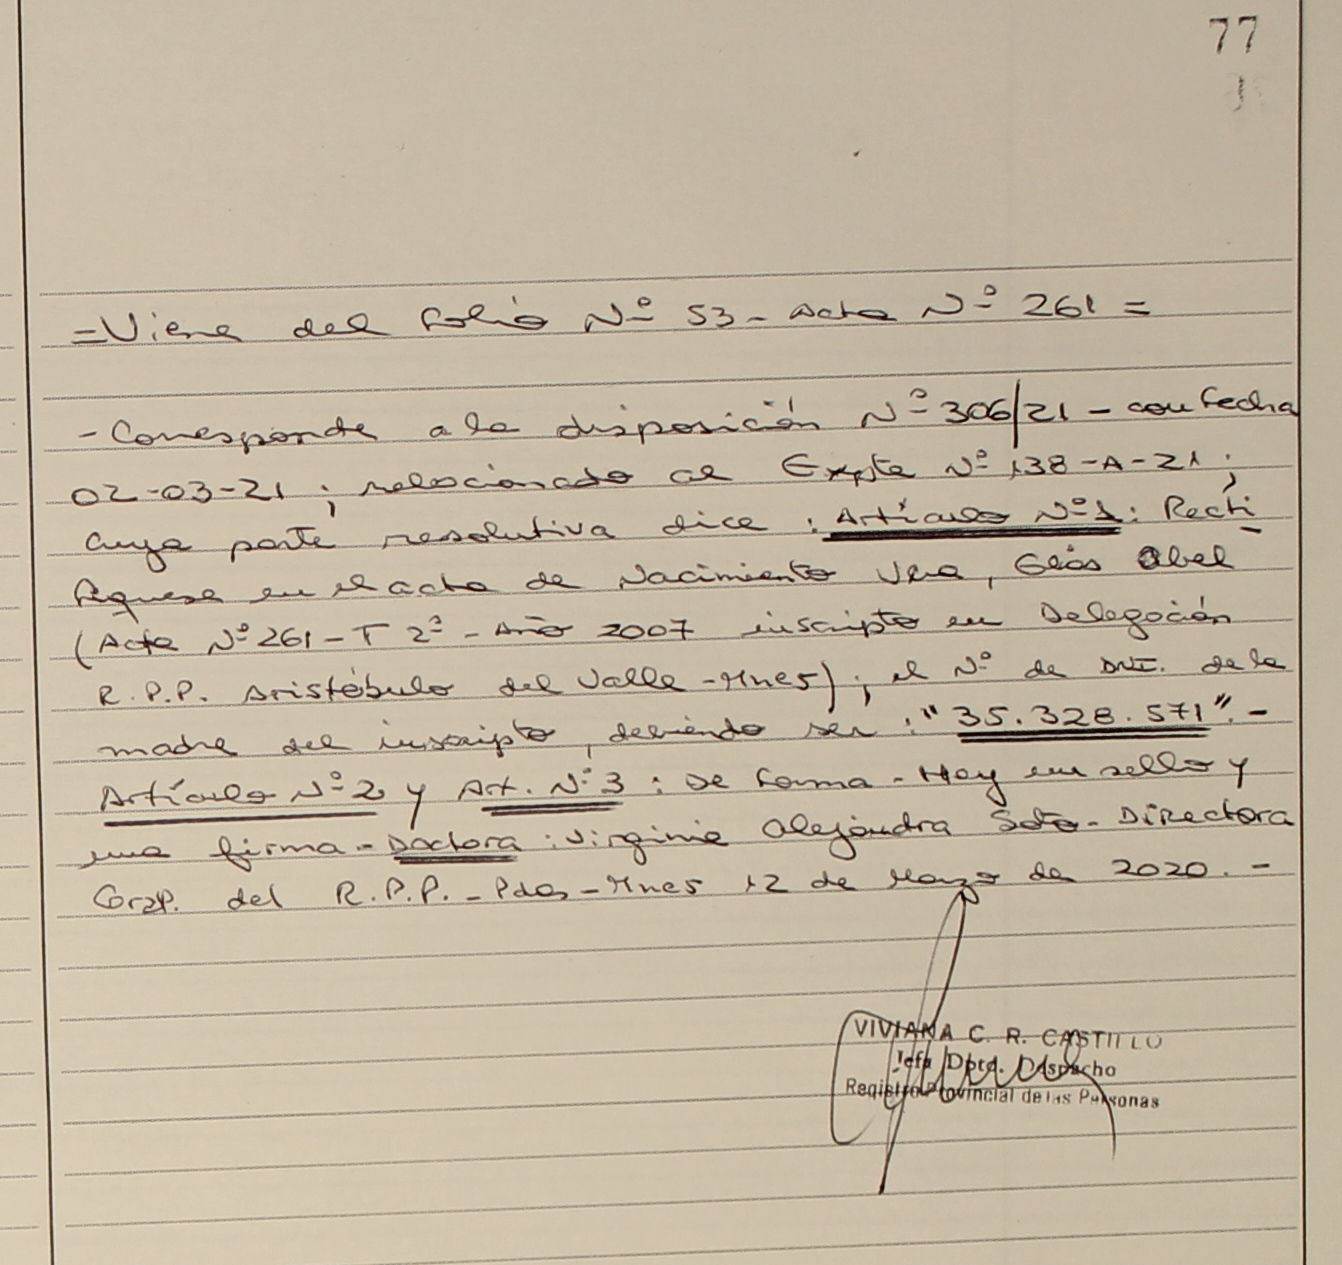 77
=Viene del folio Nº 53- Acta Nº 261 =
- Corresponde a la disposición Nº 306/21 - con fecha
02-03-21 ; relacionado al Expte Nº 138-A-21 ;
cuya parte resolutiva dice : Artículo Nº1 : Recti
fiquese en el acta de Nacimiento Vera, Elías Abel
(Acta Nº 261 - T 2º - Año 2007 inscripto en Delegación
R.P.P. Aristóbulo del Valle - Mnes) ; el Nº de DNI. de la
madre del inscripto, debiendo ser : "35.328.571". -
Artículo Nº 2 y Art. Nº 3 : De forma - Hay un sello y
una firma - Doctora : Virginia Alejandra Soto - Directora
Gral. del R.P.P. - Pdas - Mnes 12 de Marzo de 2020. -
VIVIANA C. R. CASTILLO
Jefa Dpto. Despacho
Registro Provincial de las Personas